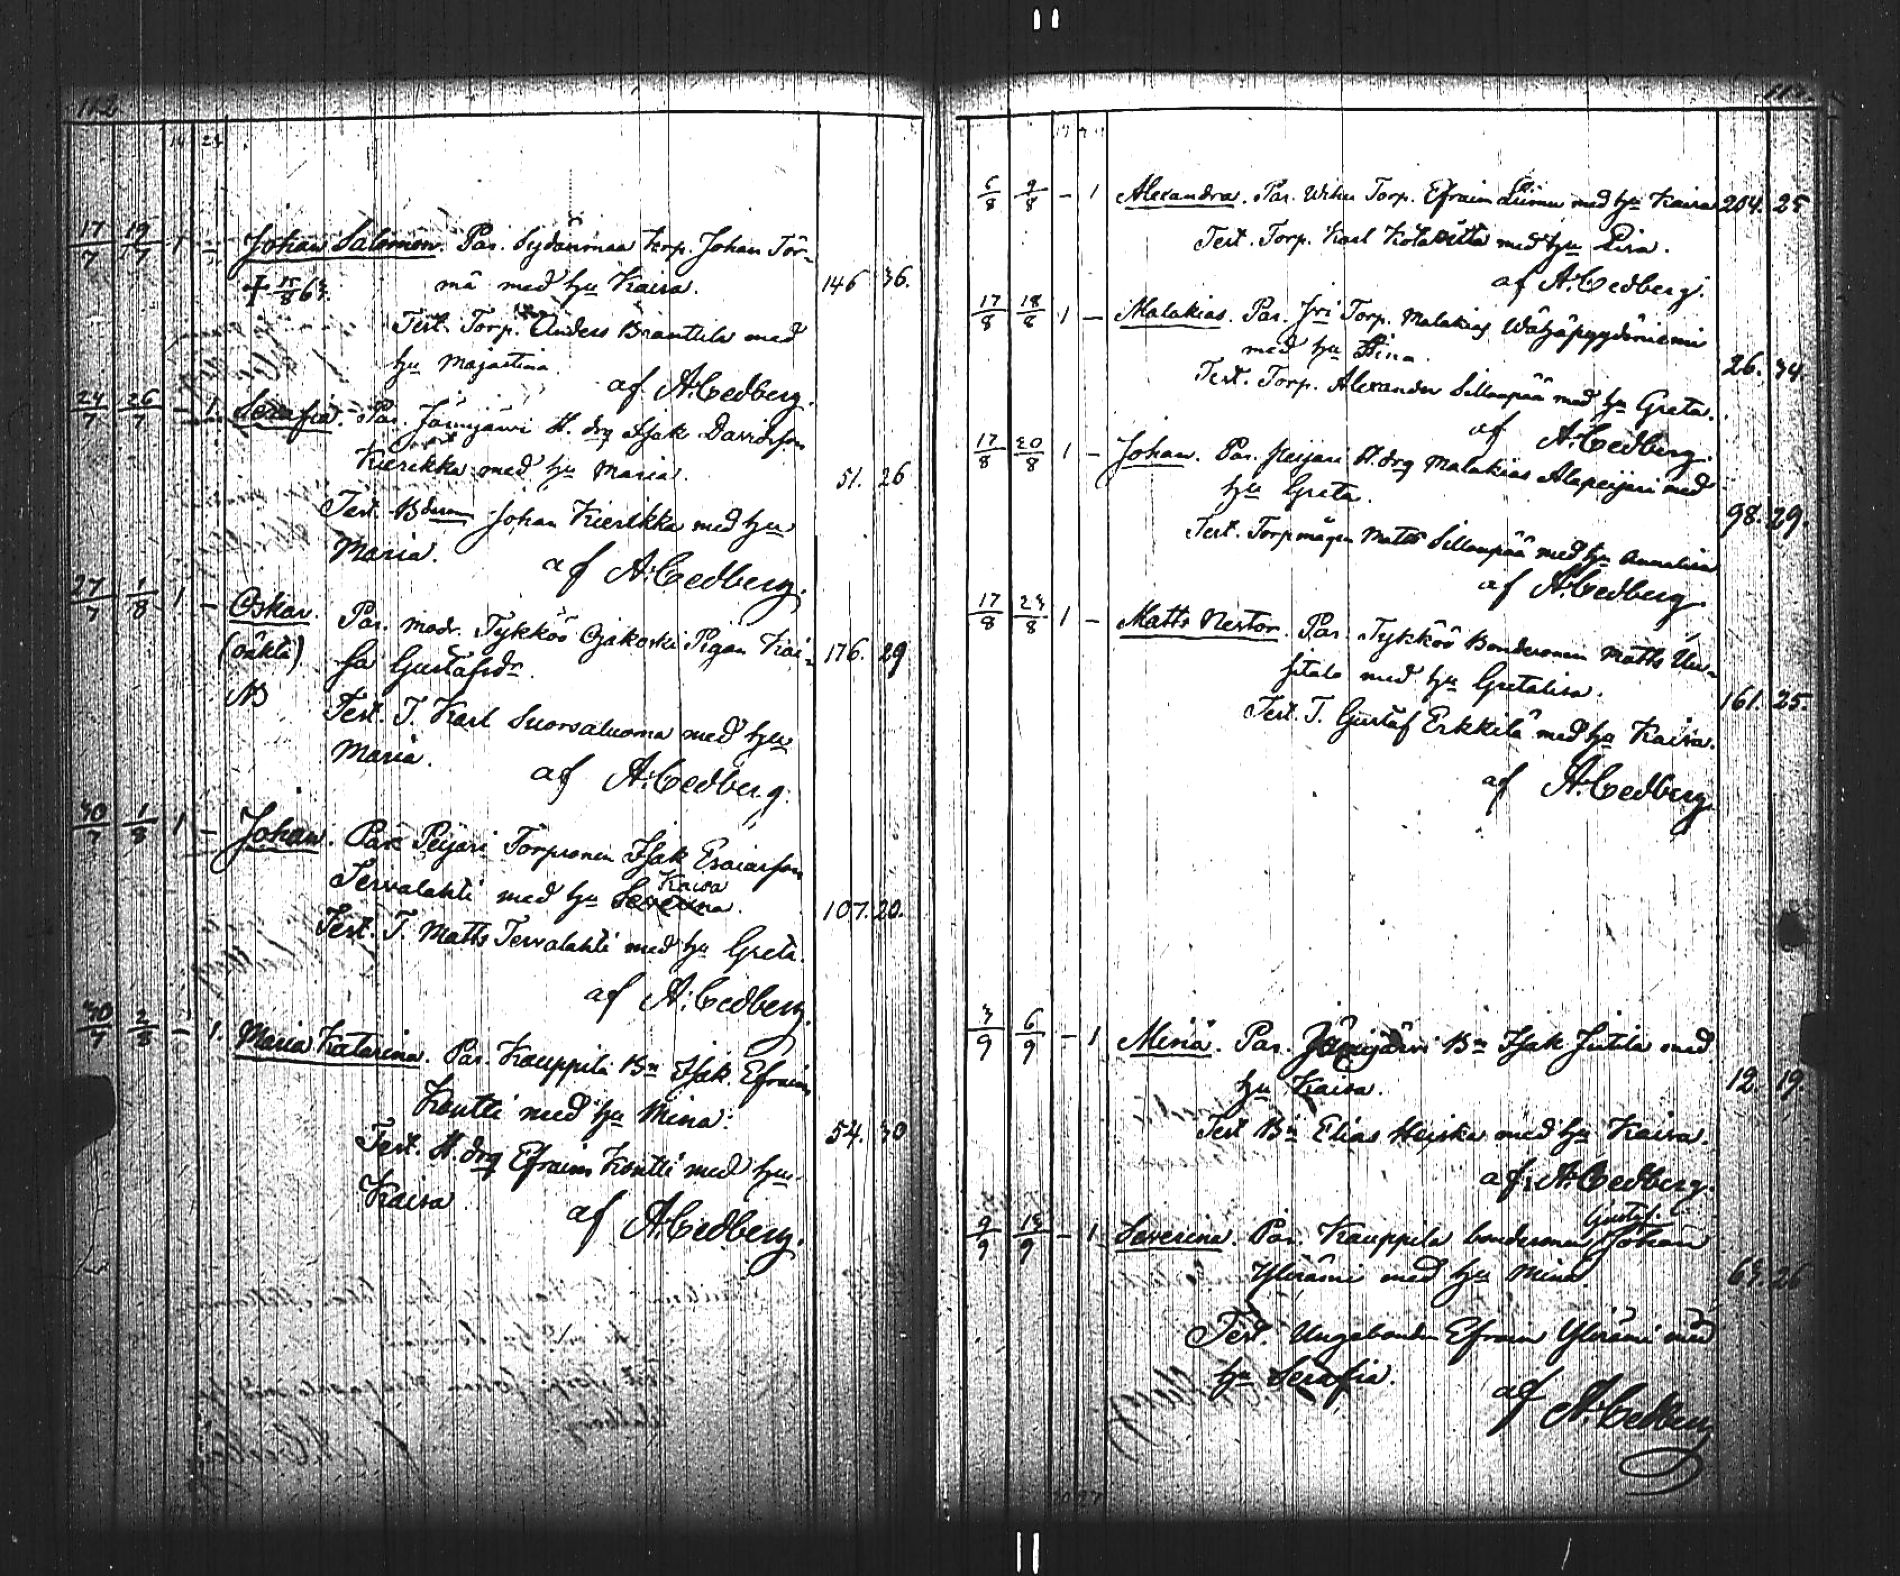 112
17/7 19/7 1 - Johan Salomon. Par. Sydänmaa torp. Johan Tör-
† 15/8 63. mä med hu Kaisa. 146 36.
Test. Torp. Anders Brantila med
hu Majastina.
af A. Cedberg.
24/7 26/7 - 1. Serafia. Par. Jämijärvi H. drg Isak Davidsson
Kierikka med hu Maria. 51. 26
Test. Bdeson Johan Kierikka med hu
Maria.
af A. Cedberg.
27/7 1/8 1 - Oskar. Par. modr. Tykköö Ojakoski Pigan Kai- 176. 29
(oäkta) sa Gustafsdr.
NB Test. T. Karl Suorsaluoma med hu
Maria.
af A. Cedberg.
30/7 1/8 1 - Johan. Par. Peijari Torpsonen Isak Esaiasson
Kaisa
Tervalahti med hu Severina. 107. 20.
Test. T. Matts Tervalahti med hu Greta.
af A. Cedberg.
30/7 2/8 - 1. Maria Katarina. Par. Kauppila Bn Isak Efraim
Kontti med hu Mina. 54. 30
Test. H. drg Efraim Kontti med hu
Kaisa
af A. Cedberg.
6/8 9/8 - 1 Alexandra. Par. Wihu Torp. Efraim med hu Kaisa 204. 25
Test. Torp. Karl Kolasitta med hu Lisa.
af A. Cedberg.
17/8 18/8 1 - Malakias. Par. Jri Torp. Malakias Wähäpyydönniemi
med hu Stina. 26. 34.
Test. Torp. Alexander Sillanpää med hu Greta.
af A. Cedberg.
17/8 20/8 1 - Johan. Par. Peijari H. drg Malakias Alapeijari med
hu Greta. 98. 29.
Test. Torpmågen Matts Sillanpää med hu Annalisa
af A. Cedberg.
17/8 23/8 1 - Matts Nestor. Par. Tykköö Bondesonen Matts Uu-
sitalo med hu Gretalisa. 161. 25.
Test. T. Gustaf Erkkilä med hu Kaisa.
af A. Cedberg.
3/9 6/9 - 1 Miina. Par. Jämijärvi Bn Isak Jutila med
hu Kaisa. 12. 19.
Test Bn Elias Heiska med hu Kaisa.
af A. Cedberg.
Gustaf.
9/9 13/9 - 1 Severina. Par. Kauppila bondesonen Johan
Ylirämi med hu Mina. 63. 26
Test. Ungabonden Efraim Ylirämi med
hu Serafia.
af A. Cedberg